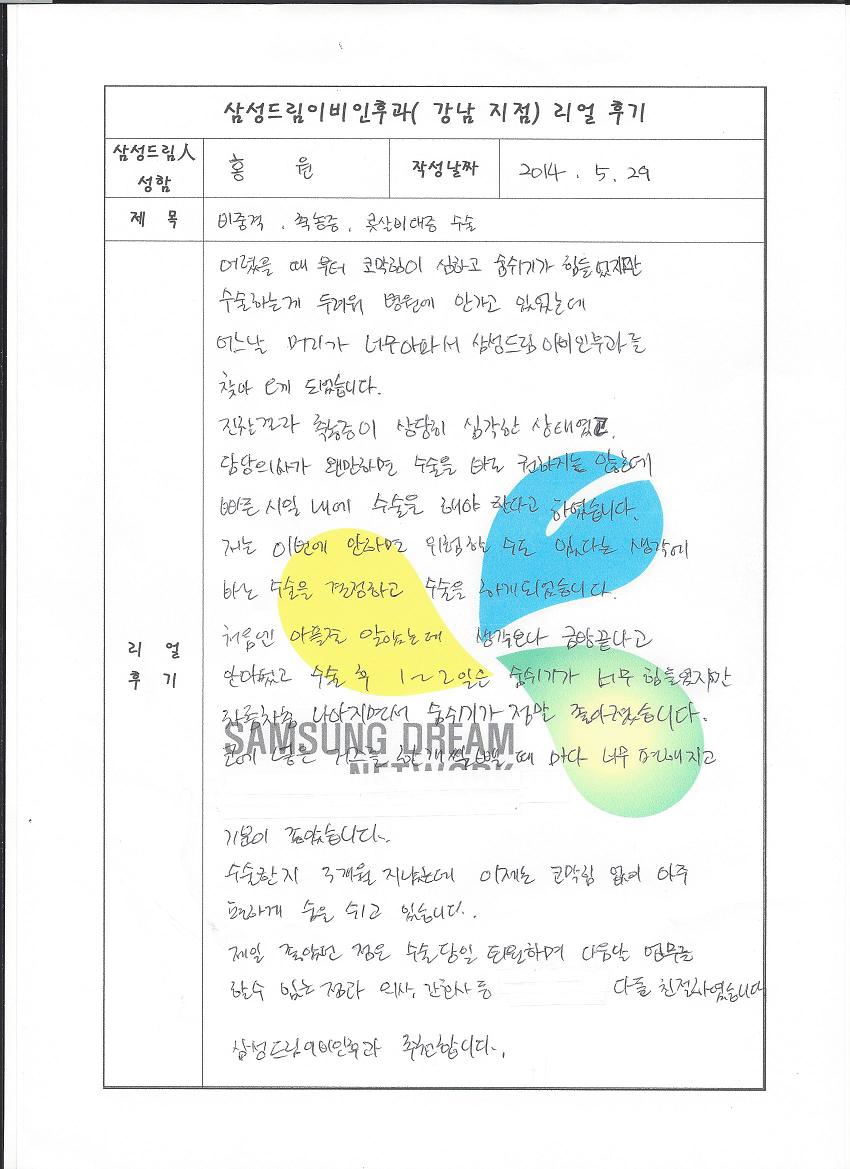 삼성드림이비인후과( 강남 지점) 리얼 후기
삼성드림人 성함
홍 원
작성날짜
2014. 5. 29
제 목
비중격, 축농증, 콧살비대증 수술
리 얼 후 기
어렸을 때 부터 코막힘이 심하고 숨쉬기가 힘들었지만
수술하는게 두려워 병원에 안가고 있었는데
어느날 머리가 너무아파서 삼성드림이비인후과를
찾아 오게 되었습니다.
진찰결과 축농증이 상당히 심각한 상태였고,
담당의사가 왠만하면 수술을 바로 권하지는 않는데
빠른 시일 내에 수술을 해야 한다고 하였습니다.
저는 이번에 안하면 위험할 수도 있다는 생각에
바로 수술을 결정하고 수술을 하게되었습니다.
처음엔 아플줄 알았는데 생각보다 금방끝나고
안아팠고 수술 후 1~2일은 숨쉬기가 너무 힘들었지만
차츰차츰 나아지면서 숨쉬기가 정말 좋아졌습니다.
SAMSUNG DREAM
NETWORK
코에 넣은 거즈를 한개씩 뺄 때 마다 너무 편해지고
기분이 좋았습니다.
수술한지 3개월 지났는데 이제는 코막힘 없이 아주
편하게 숨을 쉬고 있습니다.
제일 좋았던 점은 수술당일 퇴원하며 다음날 업무를
할수 있는 점과 의사, 간호사 등 다들 친절하였습니다
삼성드림이비인후과 추천합니다.